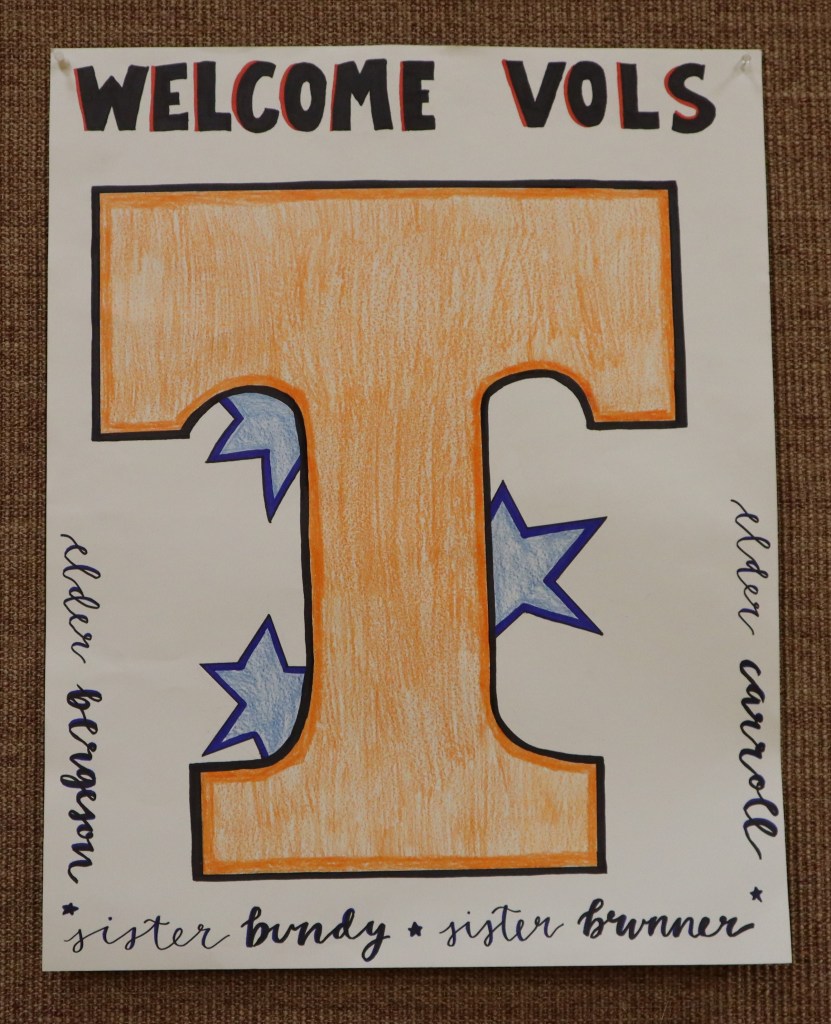 WELCOME VOLS
T
elder bergeson
elder carroll
sister bundy ★ sister brunner